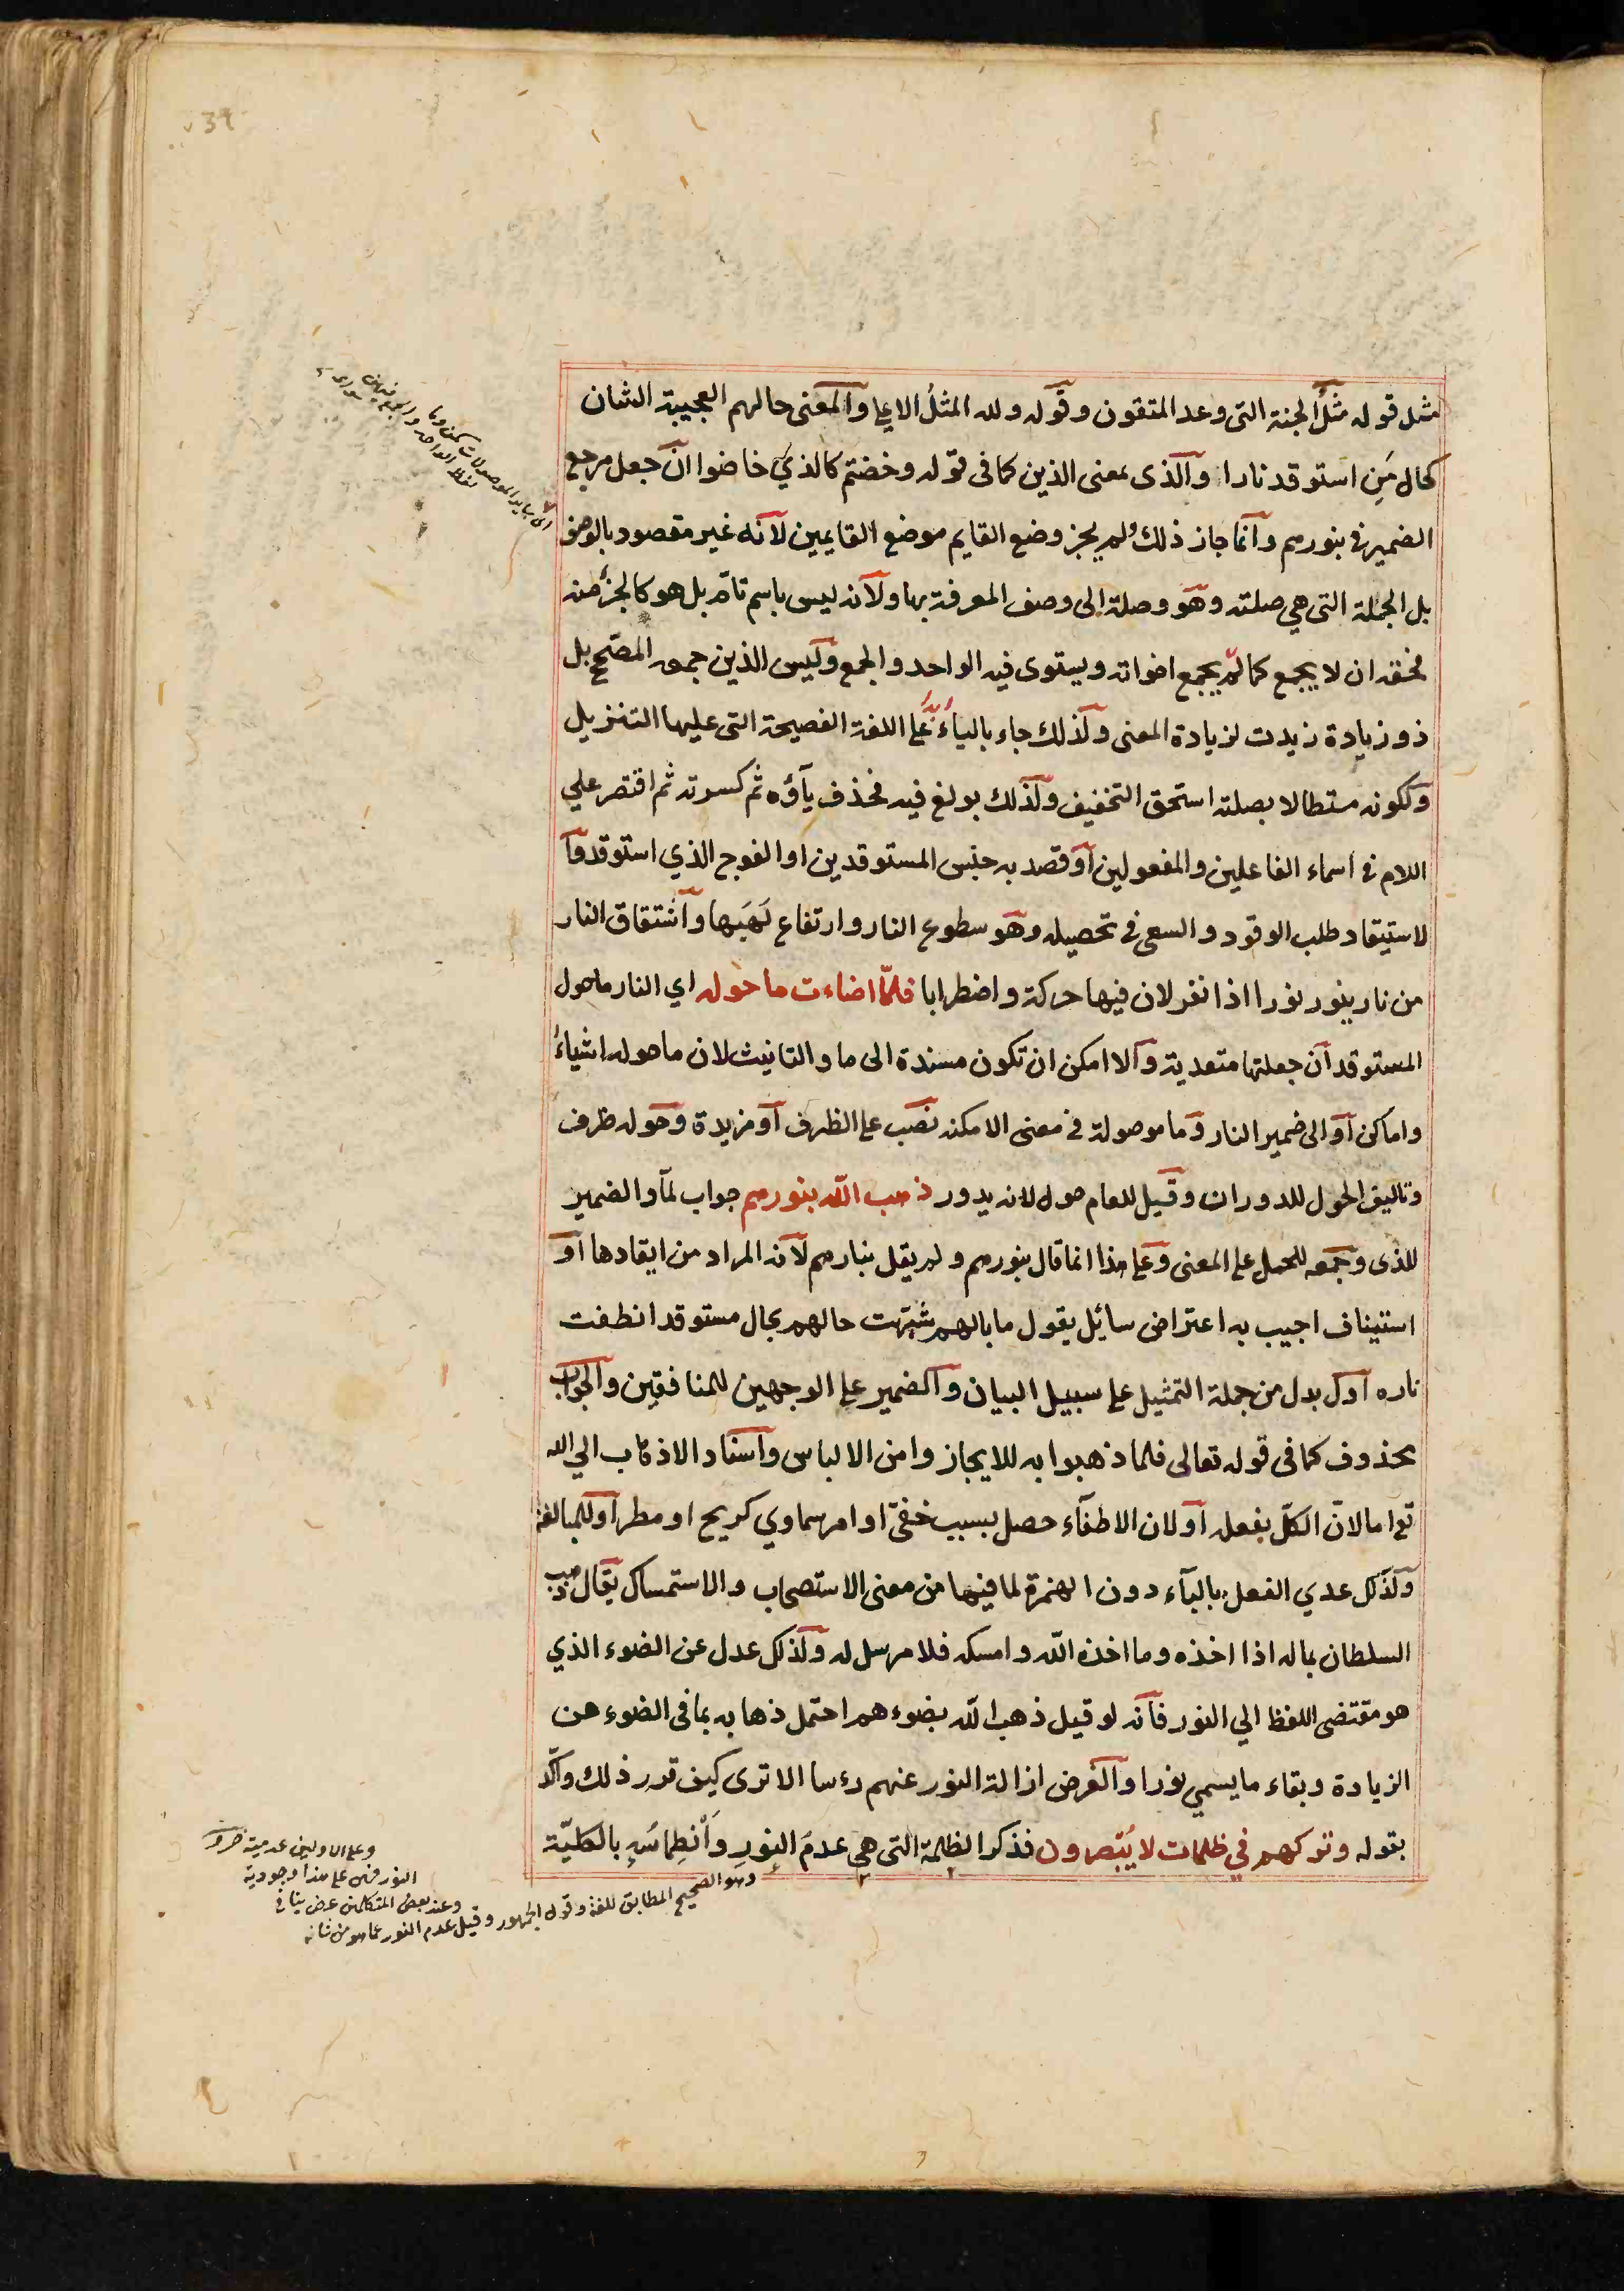 39
مثل قوله مثل الجنة التى وعد المتقون وقوله ولله المثل الاعلى والمعنى حالهم العجيبة الشان
كحال مَنِ استوقد نارا والذى بمعنى الذين كما فى قوله وخضتم كالذي خاضوا ان جعل مرجع
الضمير فى بنورهم وانما جاز ذلك ولم يجز وضع القايم موضع القايمين لانه غير مقصود بالوصف
بل الجملة التى هي صلته وهو وصلة الى وصف المعرفة بها ولانه ليس باسم تامّ بل هو كالجزء منه
فحقه ان لا يجمع كما لم يجمع اخواته ويستوى فيه الواحد والجمع وليس الذين جمعه المصحّح بل
ذو زيادة زيدت لزيادة المعنى ولذلك جاء بالياء على اللغة الفصيحة التى عليها التنزيل
ولكونه مستطالا بصلته استحق التخفيف ولذلك بولغ فيه فحذف ياؤه ثم كسرته ثم اقتصر علي
اللام فى اسماء الفاعلين والمفعولين او قصد به جنس المستوقدين او الفوج الذي استوقد وآ
لاستيقاد طلب الوقود والسعى فى تحصيله وهو سطوع النار وارتفاع لَهَبها واشتقاق النار
من نار ينور نورا اذا نفر لان فيها حركة واضطرابا فلمّا اضاءت ما حوله اي النار ما حول
المستوقد ان جعلتها متعدية والا امكن ان تكون مسندة الى ما والتانيث لان ما حوله اشياءُ
واماكن او الى ضمير النار وما موصولة فى معنى الامكنه نصب على الظرف او مزيدة وحوله ظرف
وتاليف الحول للدوران وقيل للعام حول لانه يدور ذهب الله بنورهم جواب لمّا والضمير
للذى وجمعه للحمل على المعنى وعلى هذا انما قال بنورهم ولم يقل بنارهم لانه المراد من ايقادها او
استيناف اجيب به اعتراض سائل يقول ما بالهم شبّهت حالهم بحال مستوقد انطفت
ناره او بدل من جملة التمثيل على سبيل البيان والضمير على الوجهين للمنافقين والجواب
محذوف كما فى قوله تعالى فلما ذهبوا به للايجاز وامن الالباس واسناد الاذهاب الي الله
تع اما لانّ الكلّ بفعله او لان الاطفآء حصل بسبب خفىّ او امر سماوي كريح او مطر او للمبالغة
ولذلك عدي الفعل بالبآء دون الهمزة لما فيها من معنى الاستصحاب والاستمساك يقال ذهب
السلطان بماله اذا اخذه وما اخذه الله وامسكه فلا مرسل له ولذلك عدل عن الضوء الذي
هو مقتضى اللفظ الي النور فانه لو قيل ذهب الله بضوءهم احتمل ذهابه بما فى الضوء من
الزيادة وبقاء ما يسمي نورا والغرض ازالة النور عنهم رءسا الا ترى كيف قرر ذلك واكّد
بقوله وتركهم في ظلمات لا يُبْصرون فذكر الظلمة التى هى عدمُ النورِ واَنْطِماسُهِ بالكليّة
اى سايد الموصولات كمن وما
لفظ الواحد والجمع فيهن
سواء
وهو الصحيح المطابق للغة وقول الجمهور وقيل عدم النور عما هو من شانه
وعند بعض المتكلمين عرض ينافى
النور فهى على هذا وجودية
وعلى الاولين عدمية